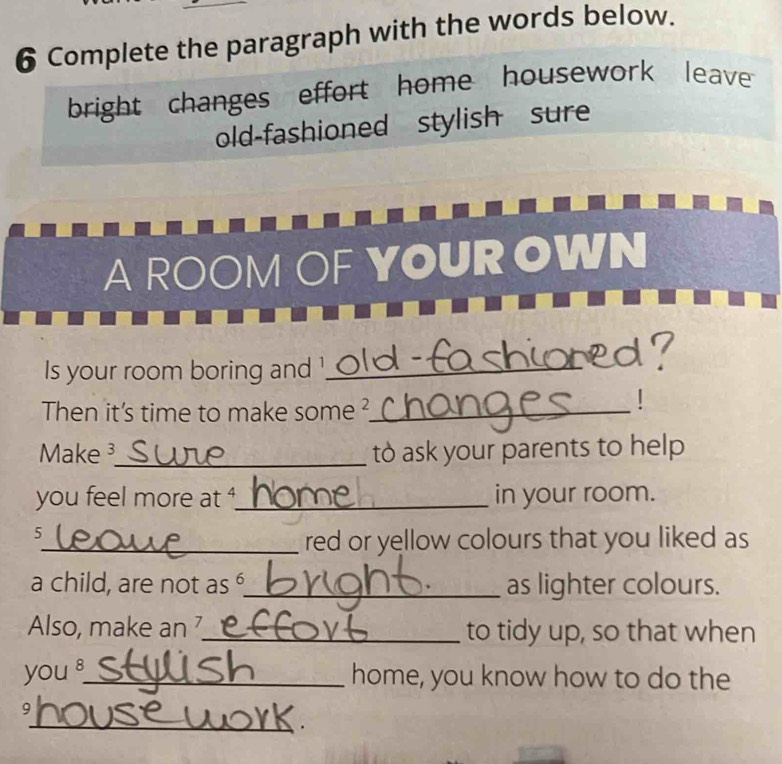 6 Complete the paragraph with the words below.
bright changes effort home housework leave
old-fashioned stylish sure
A ROOM OF YOUR OWN
Is your room boring and ¹ old-fashioned?
Then it's time to make some ² changes !
Make ³ sure to ask your parents to help
you feel more at ⁴ home in your room.
⁵ leave red or yellow colours that you liked as
a child, are not as ⁶ bright. as lighter colours.
Also, make an ⁷ effort to tidy up, so that when
you ⁸ stylish home, you know how to do the
⁹ house work .